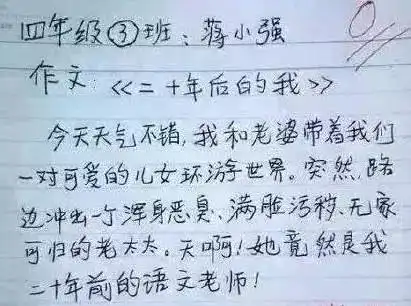 四年级③班：蒋小强
作文：<<二十年后的我>>
今天天气不错，我和老婆带着我们
一对可爱的儿女环游世界。突然，路
边冲出一个浑身恶臭、满脸污秽、无家
可归的老太太。天啊！她竟然是我
二十年前的语文老师！
0